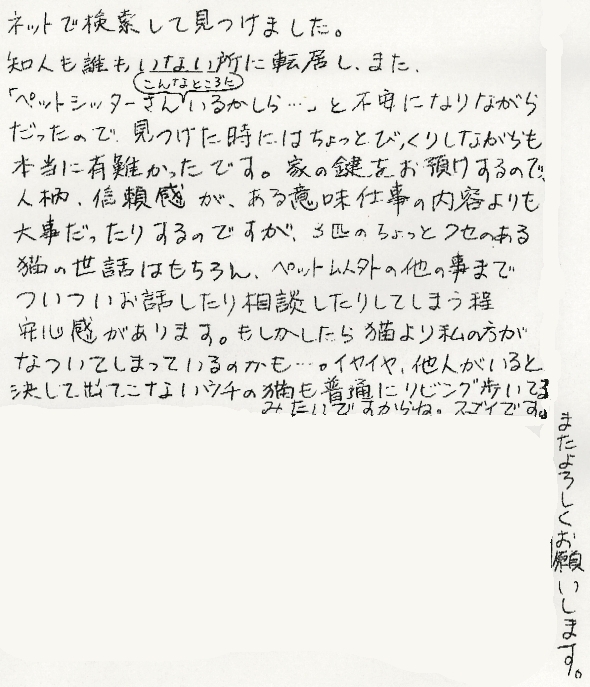 ネットで検索して見つけました。
知人も誰もいない所に転居し、また、
こんなところに
「ペットシッターさんいるかしら…」と不安になりながら
だったので、見つけた時にはちょっとびっくりしながらも
本当に有難かったです。家の鍵をお預けするので、
人柄、信頼感が、ある意味仕事の内容よりも
大事だったりするのですが、3匹のちょっとクセのある
猫の世話はもちろん、ペット以外の他の事まで
ついついお話したり相談したりしてしまう程
安心感があります。もしかしたら猫より私の方が
なついてしまっているのかも…。イヤイヤ、他人がいると
決して出てこないウチの猫も普通にリビング歩いてる
みたいですからね。スゴイです。
またよろしくお願いします。